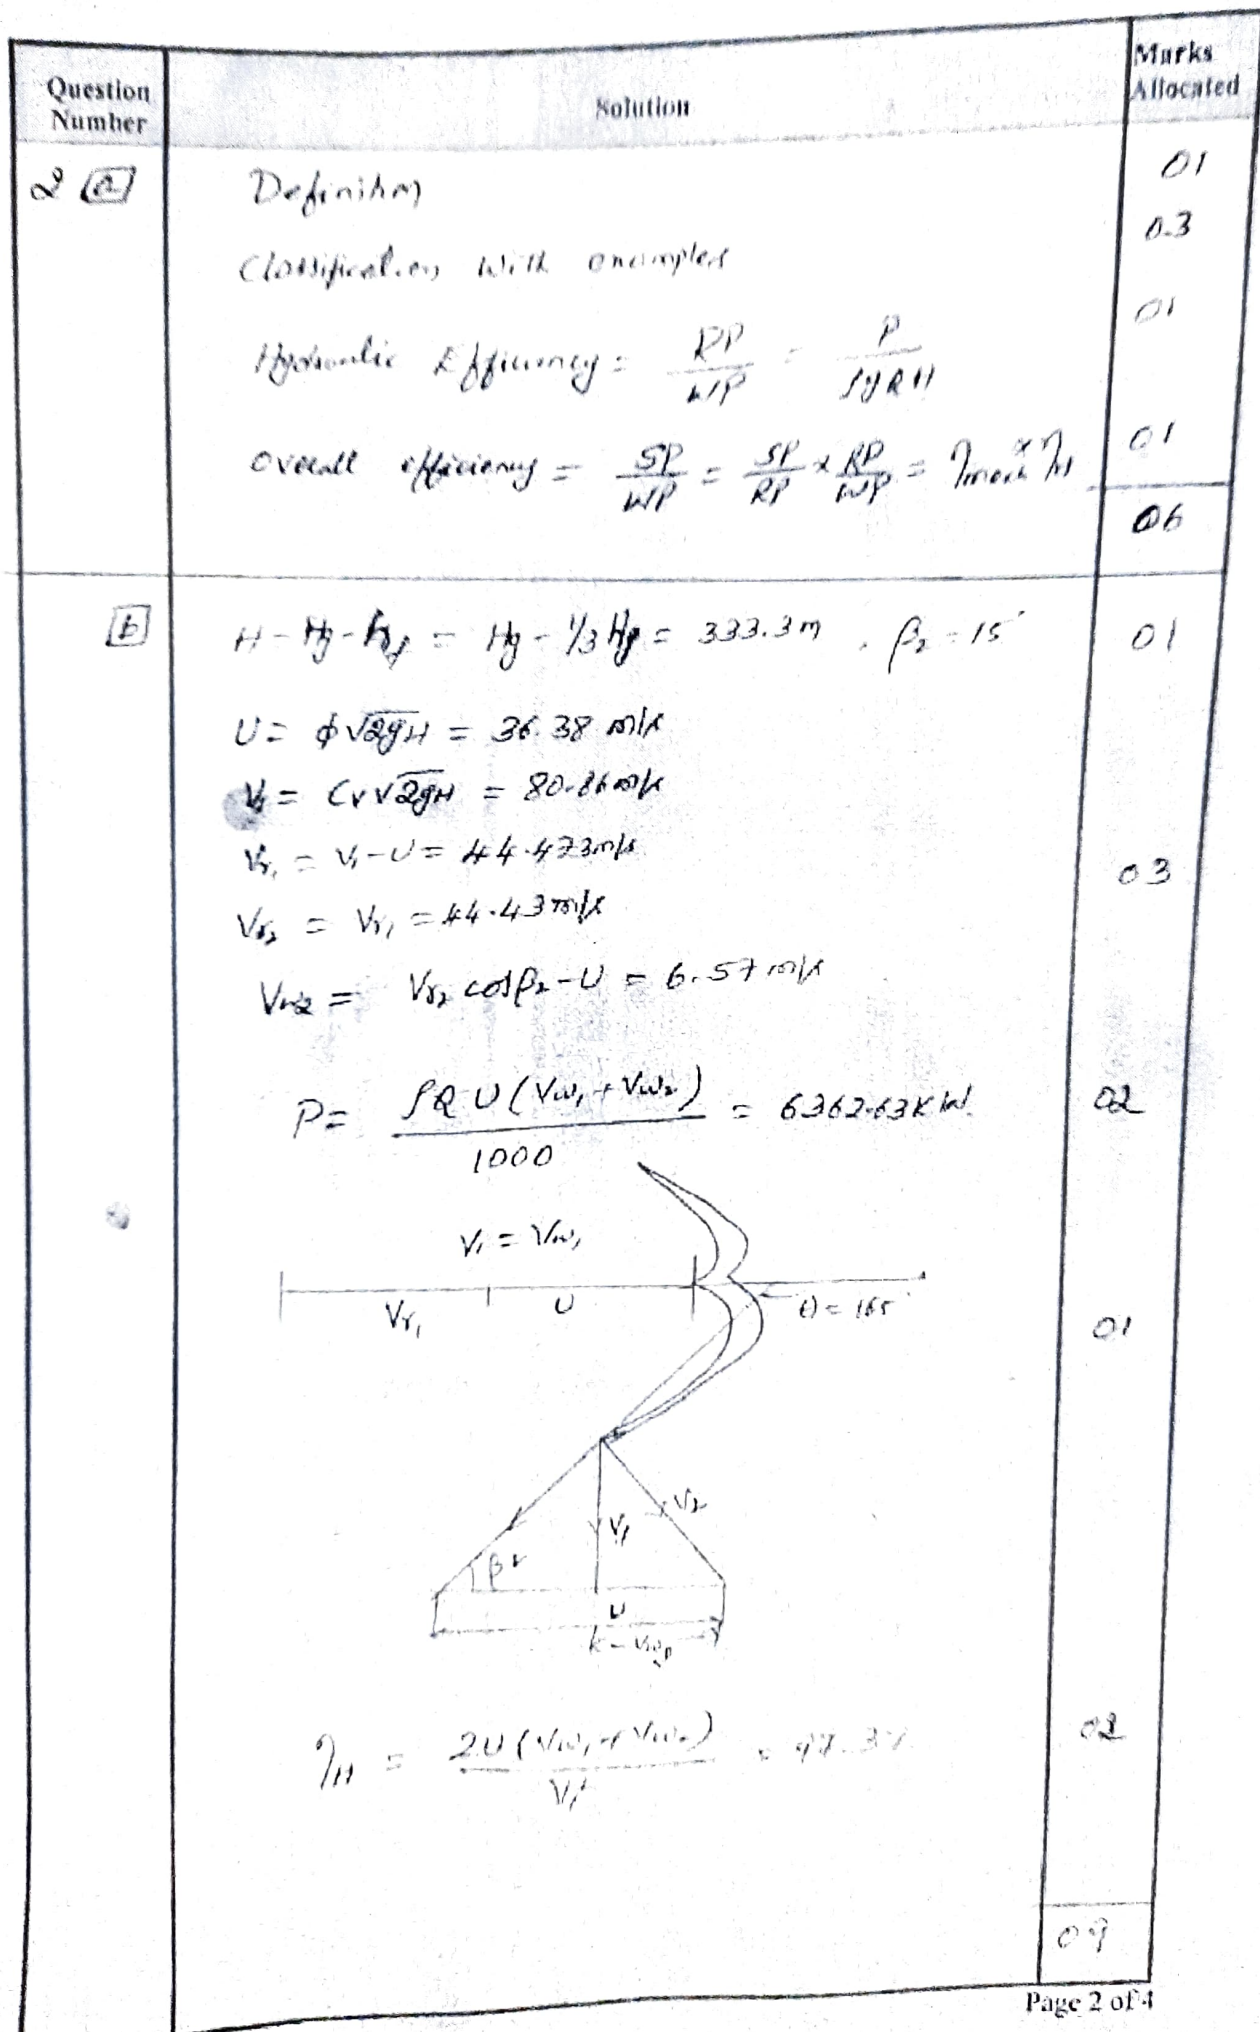 Question Number
Solution
Marks Allocated
2 a
Definition 01
Classification with examples 03
Hydraulic Efficiency = RP/WP = P/ρgQH 01
Overall efficiency = SP/WP = SP/RP × RP/WP = ηmech × ηH 01
06
b
H = Hg - hf = Hg - 1/3 Hg = 333.3m , β₂ = 15° 01
U = φ √2gH = 36.38 m/s
V₁ = Cv √2gH = 80.86 m/s
Vr₁ = V₁ - U = 44.473 m/s
03
Vr₂ = Vr₁ = 44.43 m/s
Vw2 = Vr₂ cosβ₂ - U = 6.57 m/s
P = ρQU(Vw₁ + Vw₂)/1000 = 6362.63 KW 02
V₁ = Vw₁
Vr₁ U θ = 165° 01
V₂
Vf
β₂
U
Vw₂
ηH = 2U(Vw₁ + Vw₂)/V₁² = 97.3% 02
09
Page 2 of 4